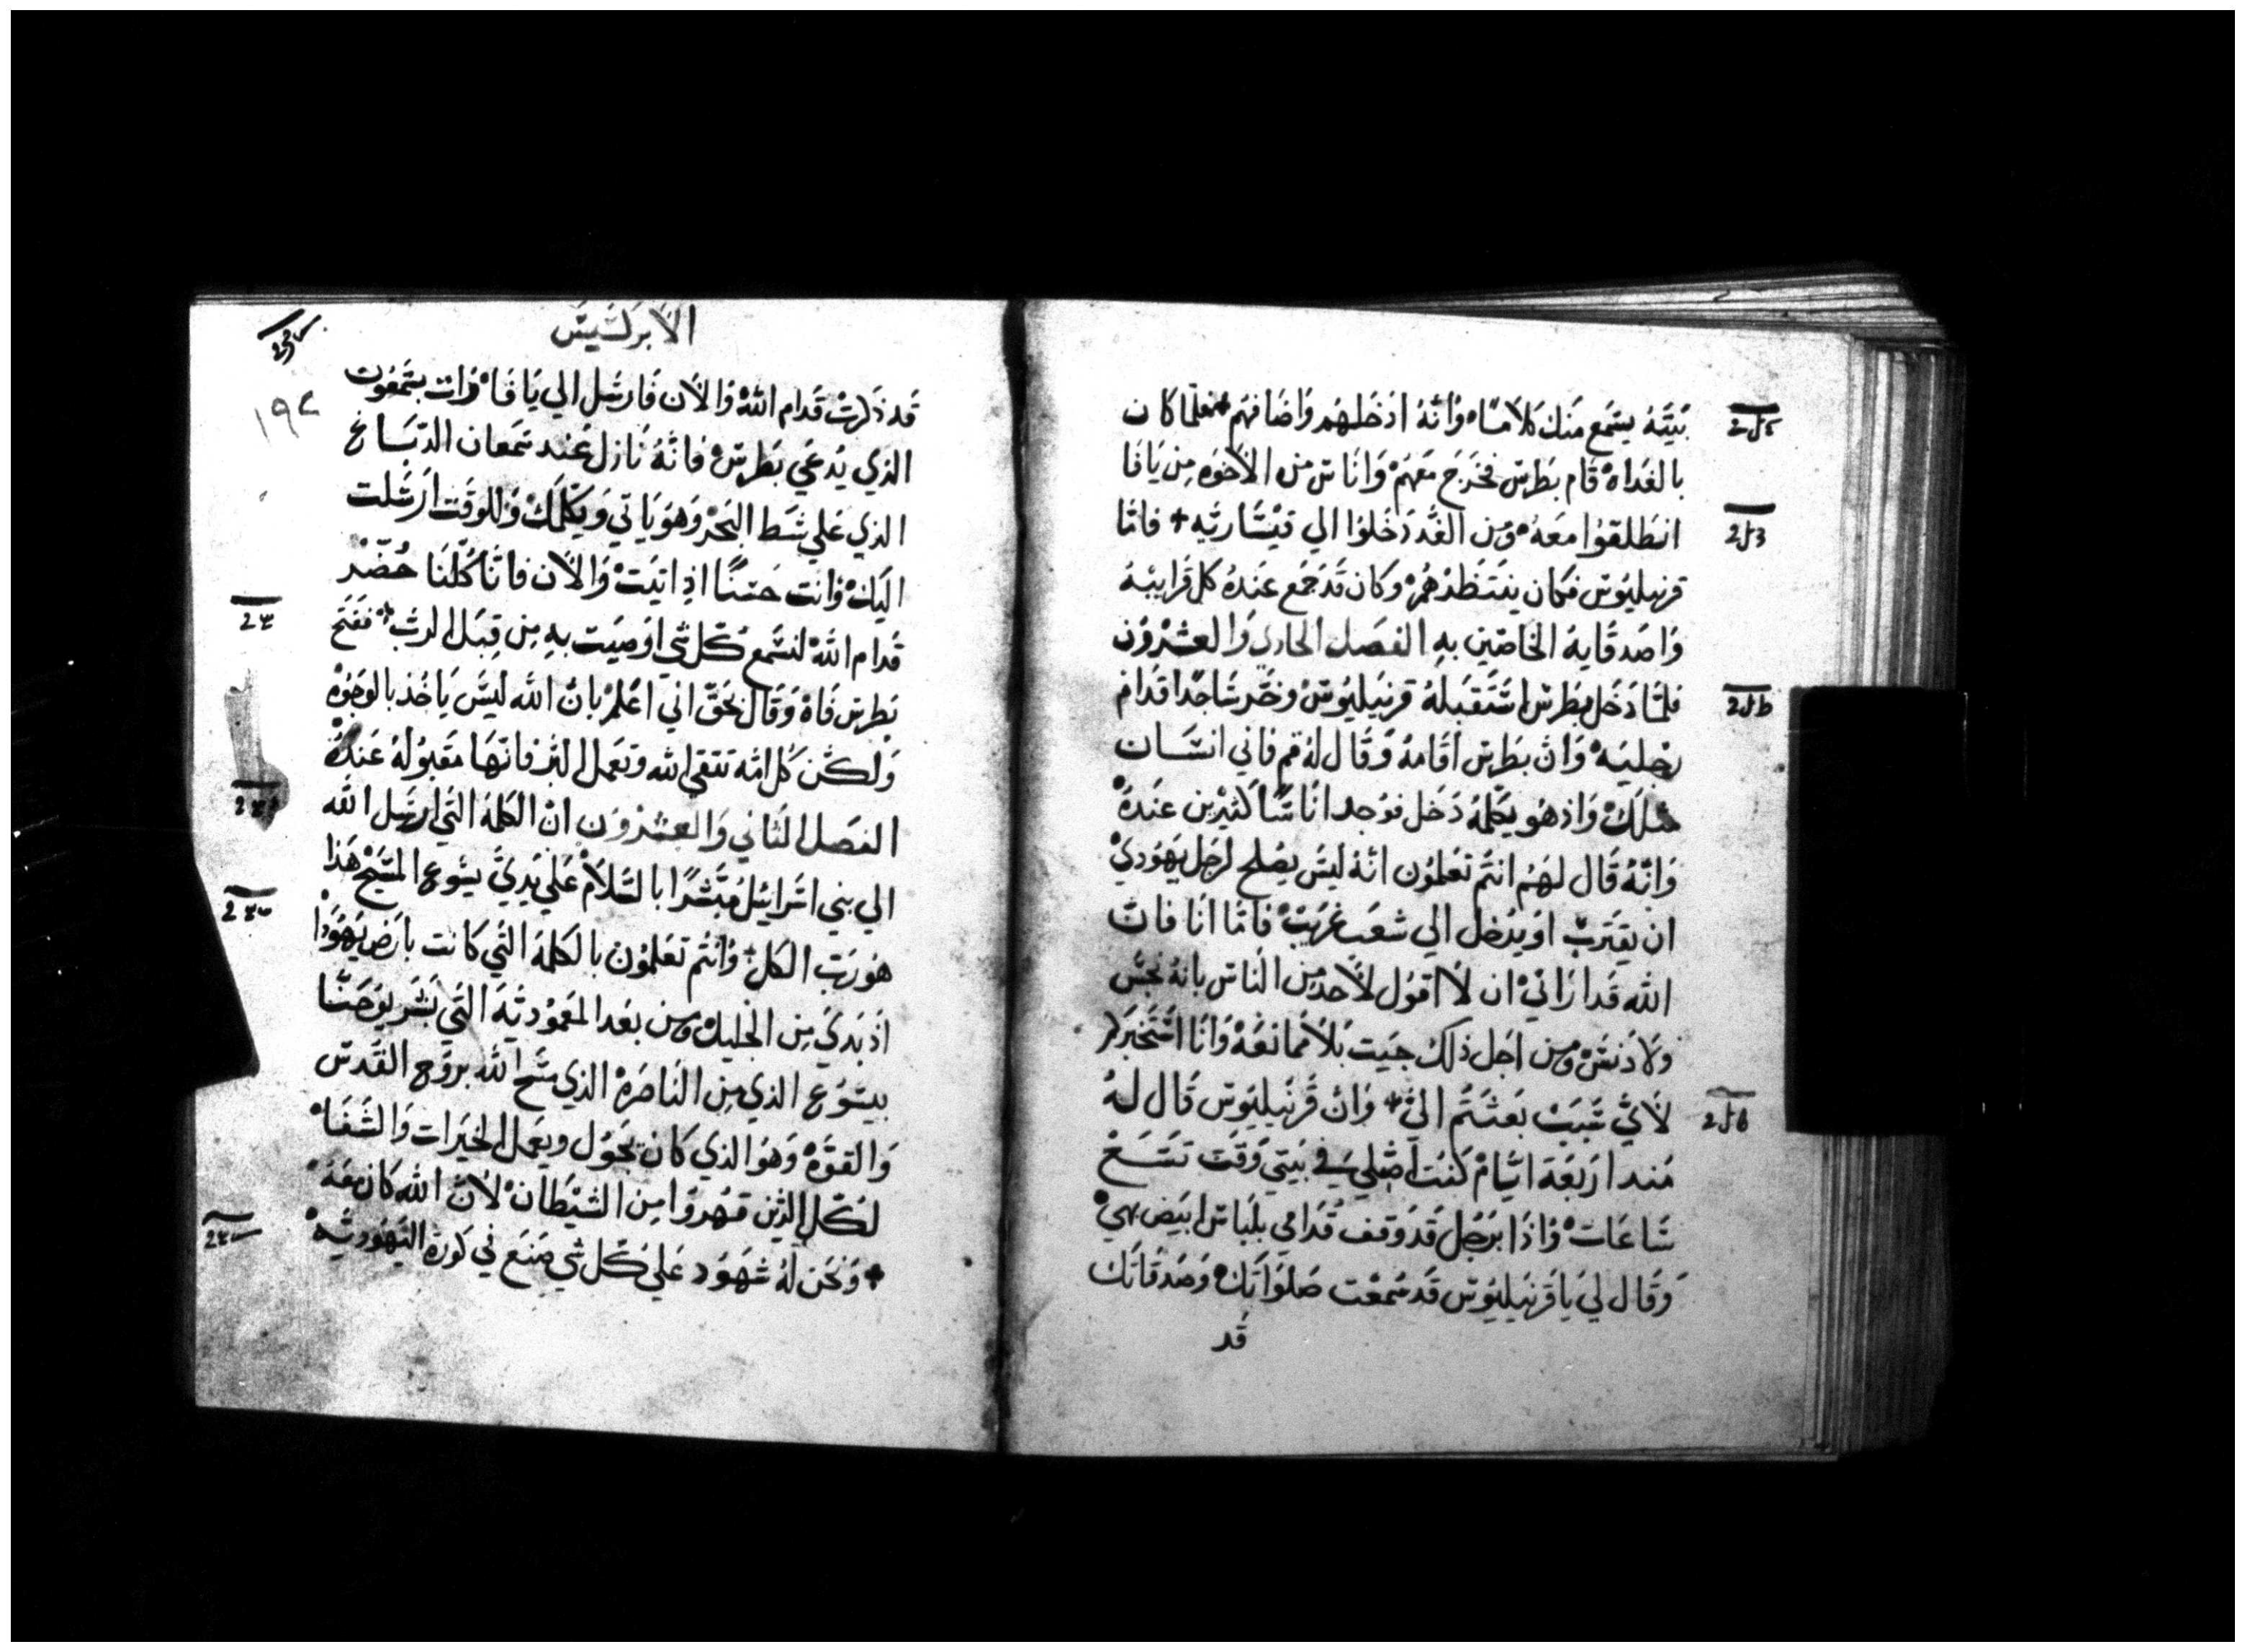 بَيتَهُ يسَمع منَك كلاَمًا وَانَّهُ ادَخَلهُم وَاضَافهَم فلمَا كان
بالغدَاه قام بطَرس فخرَج معَهمْ وَانَاس من الاخوَه مِن يَافَا
انطَلقوُا معَهُ وَمن الغَّد دَخَلوُا الي قيسَاريَه + فامَّا
قرنيليُوس فكان ينتَظرهُمْ وكان قدَ جمَع عنَدهُ كل قرَابيَهُ
وَاصَدقايهُ الخاصّين بهِ الفصَل الحادي وَالعشرُون
فلمَّا دَخَل بطَرس استَقبلهُ قرنيَليُوس وخَّر سَاجدًا قدَام
رجليَهْ وَان بطَرس اقامَهُ وَقال لهُ قم فاني انسَان
مثلكْ وَاذ هُو يكلّمهُ دَخل فوَجد انَاسًا كثيرين عنَدهْ
وَانّهُ قَال لهَم انتُم تعَلموُن انهُ ليَس يصَلح لرَجل يهَوديْ
ان يقتَرب اوَ يدَخل الي شعَب غرَيبْ فامّا انَا فانّ
الله قَد ارَانيْ ان لاَ اقوُل لاَحد مِن الناس بانهُ نجَس
وَلا دَنسْ وَمن اجَل ذلك جيَت بلاَ ممانعَهْ وَانَا استَخبَركم
لاَيّ سَبَبْ بعَثتُم اليّ + وَان قَرنيَليُوس قَال لهُ
مَند ارَبعَة ايَّامْ كنَت اصَلي في بيَتي وَقَت تسَعْ
سَاعَاتْ وَاذَا برَجُل قَد وَقف قُدَامي بلبَاس ابيَض بهيْ
وَقَال لي يَا قرَنيليُوس قَد سُمعَت صَلوَاتَكْ وَصَدقَاتَك
قَد
الاَبركسيس
١٩٢
قَد ذكرتْ قدَام اللّهْ وَالاَن فَارسَل الي يَافَاْ وَات بسَمعوُن
الذي يُدعَي بطَرسْ فانّهُ نَازل عنَد سمَعان الدّبَاغ
الذي عَلي شَط البَحرْ وَهوَ يَاتي وَيكلّمَكْ وَللوقَت ارَسَلت
اليَكْ وَانت حسَنًا اذِ اتيَتْ وَالاَن فانّا كُلّنَا حُضّر
قدَام اللّهْ لنسَمع كُل شي اوُصيَت بهِ مِن قِبَل الربّ + ففَتَح
بطرس فَاهْ وَقَال بحَقّ اني اعَلمْ بانّ اللّه ليسَ يَاخُذ بالوجُوهْ
وَلكن كل امّه تتقي الله وَتعَمل البرّ فانهَا مقَبُولهُ عَندهْ
الفصَل الثاني وَالعشرُون انّ الكلمَة التي ارسَل اللّه
الي بني اسَرائيُل مُبَشرًا بالسَلاَمْ عَلي يَديَّ يسُوع المسَيحْ هَذا
هُو ربّ الكل + وَانتُم تعَلموُن بالكلمَة التي كانت بارَض يَهوُدَا
اذ بَدي مِن الجَليلْ وَمن بعَد المعَموُديّة التي بشَر يوُحَنّا
بيسَوُع الذي مِن النَاصَرهْ الذي مسَح الله برَوح القَدس
وَالقوَّهْ وَهوَ الذي كان يجوُل ويعَمل الخيَرات وَالشفَاْ
لكُل الذين قهُروُا مِن الشيَطَانْ لاَنّ اللّه كان معَهُ
+ وَنحَن لهُ شهَوُد عَلي كُل شي صنَع في كوُرة اليَهوُديَّهْ